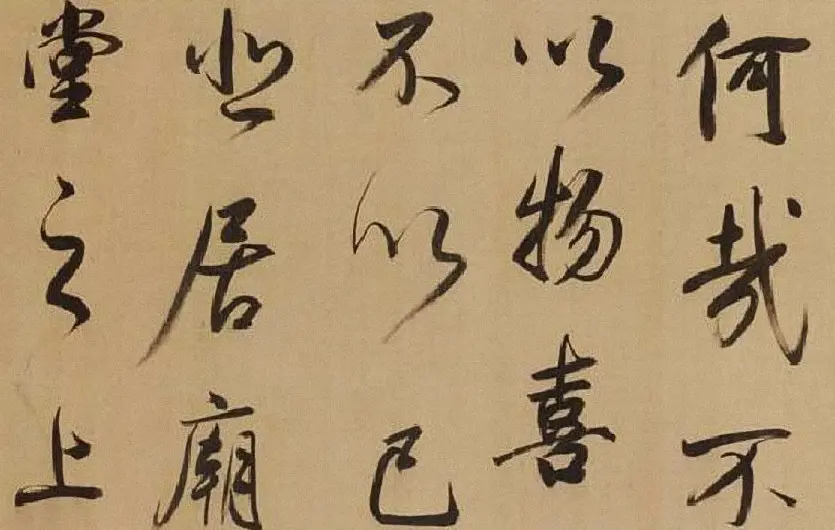 何哉不
以物喜
不以己
悲居廟
堂之上